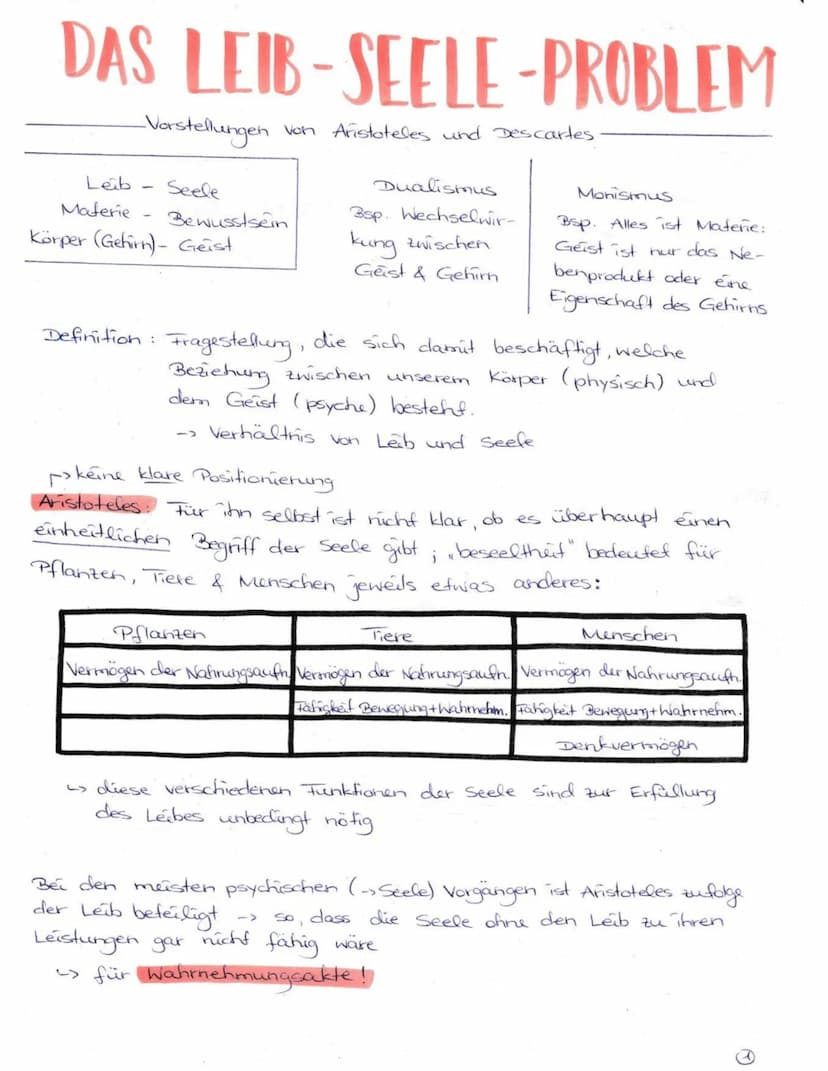 DAS LEIB-SEELE-PROBLEM
Vorstellungen von Aristoteles und Descartes
Leib - Seele
Materie - Bewusstsein
Körper (Gehirn) - Geist
Dualismus
Bsp. Wechselwir-
kung zwischen
Geist & Gehirn
Monismus
Bsp. Alles ist Materie:
Geist ist nur das Ne-
benprodukt oder eine
Eigenschaft des Gehirns
Definition: Fragestellung, die sich damit beschäftigt, welche
Beziehung zwischen unserem Körper (physisch) und
dem Geist (psyche) besteht.
-> Verhältnis von Leib und Seele
↱ keine klare Positionierung
Aristoteles: Für ihn selbst ist nicht klar, ob es überhaupt einen
einheitlichen Begriff der Seele gibt; „beseeltheit" bedeutet für
Pflanzen, Tiere & Menschen jeweils etwas anderes:
Pflanzen Tiere Menschen
Vermögen der Nahrungsaufn. Vermögen der Nahrungsaufn. Vermögen der Nahrungsaufn.
Fähigkeit Bewegung+Wahrnehm. Fähigkeit Bewegung+Wahrnehm.
Denkvermögen
↳ diese verschiedenen Funktionen der Seele sind zur Erfüllung
des Leibes unbedingt nötig
Bei den meisten psychischen (-> Seele) Vorgängen ist Aristoteles zufolge
der Leib beteiligt -> so, dass die Seele ohne den Leib zu ihren
Leistungen gar nicht fähig wäre
↳ für Wahrnehmungsakte!
1